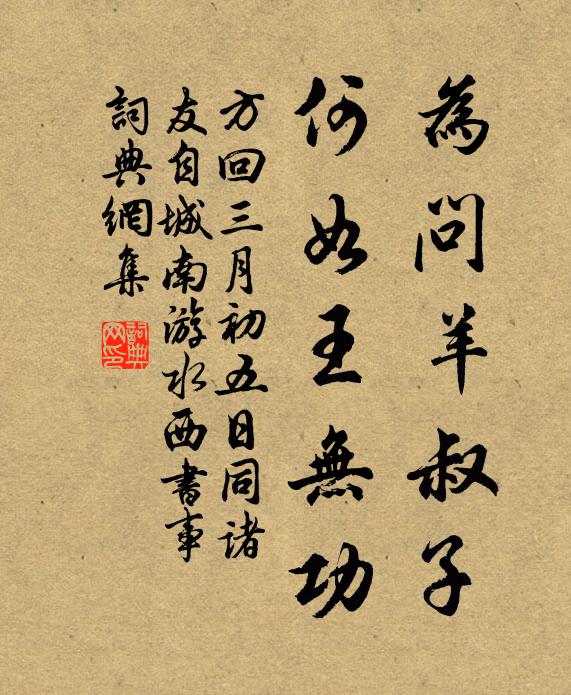 為問羊叔子
何如王無功
方回三月初五日同諸
友自城南游水西書事
詞典網集
詞典网印